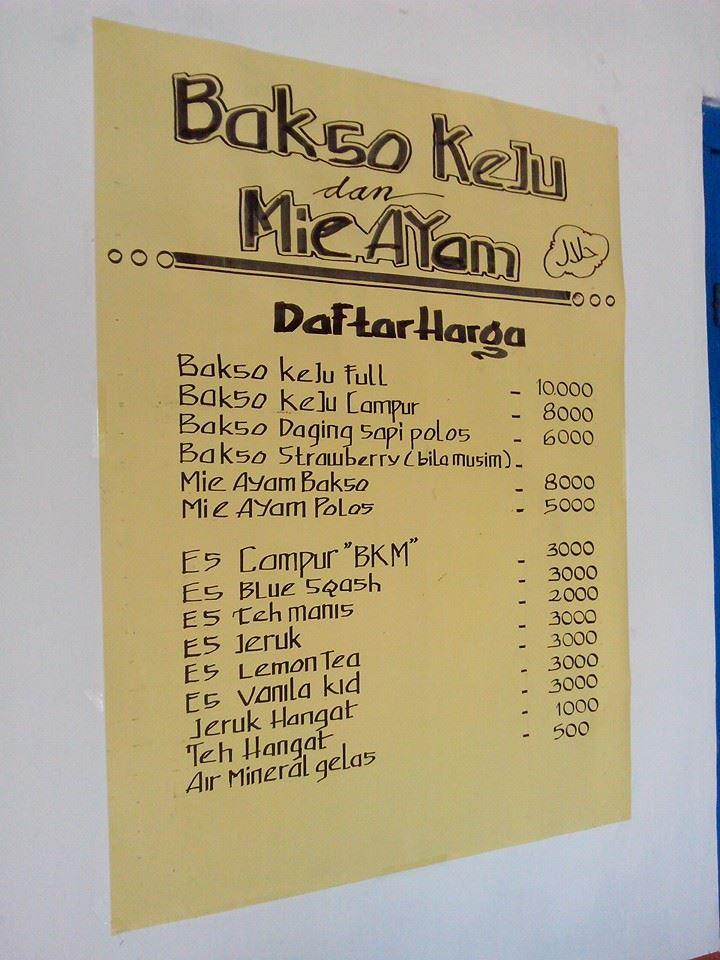 Bakso Keju
dan
Mie Ayam
حلال
Daftar Harga
Bakso Keju Full - 10.000
Bakso Keju Campur - 8000
Bakso Daging Sapi polos - 6000
Bakso Strawberry (bila musim) -
Mie Ayam Bakso - 8000
Mie Ayam Polos - 5000
Es Campur "BKM" - 3000
Es Blue Sqash - 3000
Es Teh manis - 2000
Es Jeruk - 3000
Es Lemon Tea - 3000
Es Vanila kid - 3000
Jeruk Hangat - 3000
Teh Hangat - 1000
Air Mineral gelas - 500